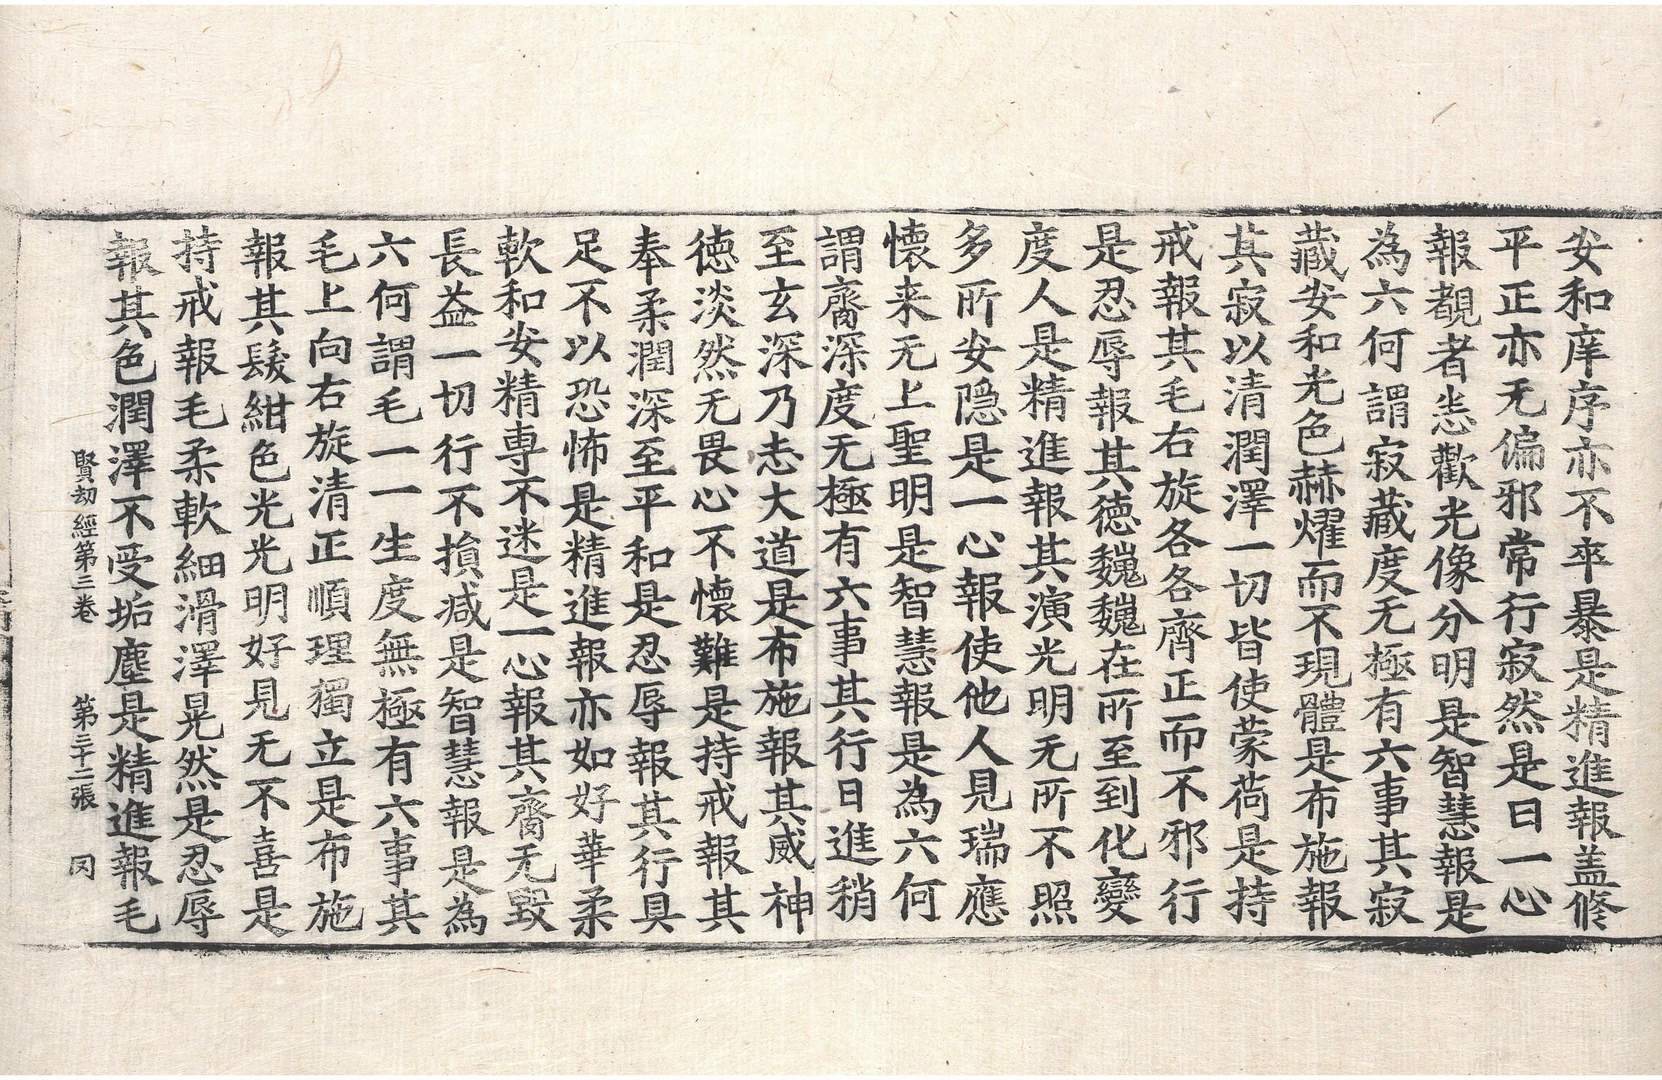 安和庠序亦不卒暴是精進報盖修
平正亦无偏邪常行寂然是曰一心
報覩者悉歡光像分明是智慧報是
為六何謂寂藏度无極有六事其寂
藏安和光色赫燿而不現體是布施報
其寂以清潤澤一切皆使蒙荷是持
戒報其毛右旋各各齊正而不邪行
是忍辱報其德巍巍在所至到化變
度人是精進報其演光明无所不照
多所安隱是一心報使他人見瑞應
懷来无上聖明是智慧報是為六何
謂齎深度无極有六事其行日進稍
至玄深乃志大道是布施報其威神
德淡然无畏心不懷難是持戒報其
奉柔潤深至平和是忍辱報其行具
足不以恐怖是精進報亦如好華柔
軟和安精專不迷是一心報其齎无毀
長益一切行不損减是智慧報是為
六何謂毛一一生度無極有六事其
毛上向右旋清正順理獨立是布施
報其髮紺色光光明好見无不喜是
持戒報毛柔軟細滑澤晃然是忍辱
報其色潤澤不受垢塵是精進報毛
賢劫經第三卷 第三十二張